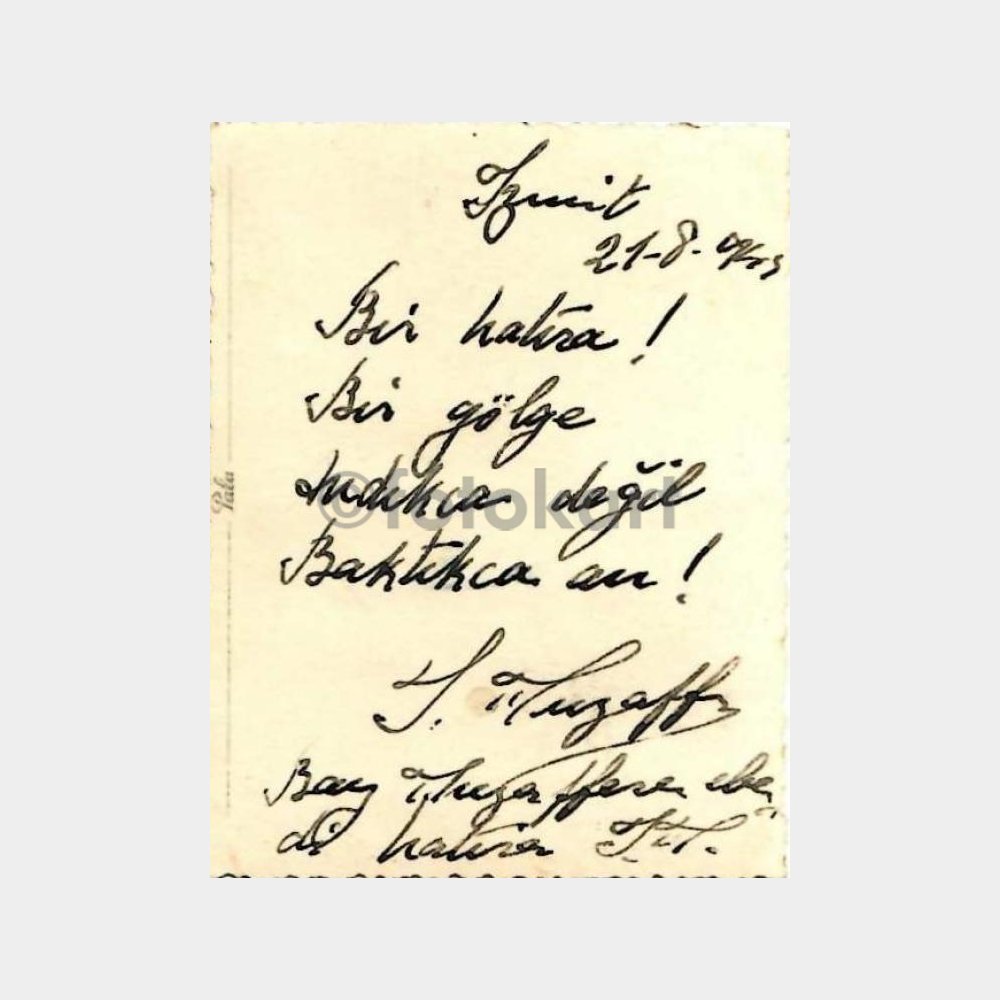 İzmit
21-8-
Bir hatıra!
Bir gölge
andıkca değil
Baktıkca an!
S. Muzaffer
Bay Muzaffere ebe
di hatıra
Pala
©fotokart